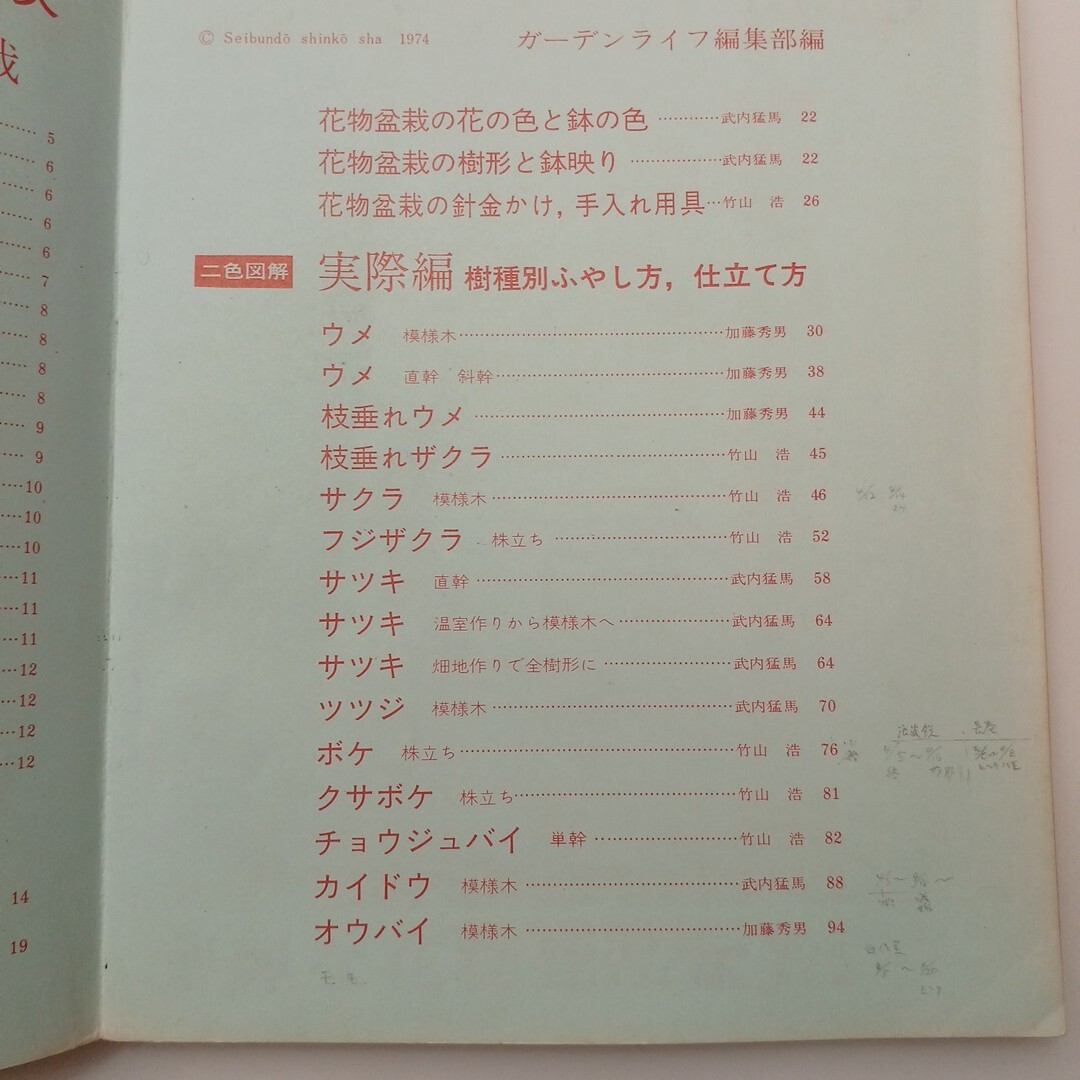 栽
5
6
6
6
6
7
8
8
8
8
9
9
10
10
10
11
11
11
12
12
12
12
14
19
© Seibundō shinkō sha 1974 ガーデンライフ編集部編
花物盆栽の花の色と鉢の色 ………… 武内猛馬 22
花物盆栽の樹形と鉢映り ……………… 武内猛馬 22
花物盆栽の針金かけ, 手入れ用具 … 竹山 浩 26
二色図解 実際編 樹種別ふやし方, 仕立て方
ウメ 模様木 …………………… 加藤秀男 30
ウメ 直幹 斜幹 …………………… 加藤秀男 38
枝垂れウメ …………………… 加藤秀男 44
枝垂れザクラ …………………… 竹山 浩 45
サクラ 模様木 …………………… 竹山 浩 46
フジザクラ 株立ち …………………… 竹山 浩 52
サツキ 直幹 …………………… 武内猛馬 58
サツキ 温室作りから模様木へ ………… 武内猛馬 64
サツキ 畑地作りで全樹形に ………… 武内猛馬 64
ツツジ 模様木 …………………… 武内猛馬 70
ボケ 株立ち …………………… 竹山 浩 76
クサボケ 株立ち …………………… 竹山 浩 81
チョウジュバイ 単幹 …………… 竹山 浩 82
カイドウ 模様木 …………………… 武内猛馬 88
オウバイ 模様木 …………………… 加藤秀男 94